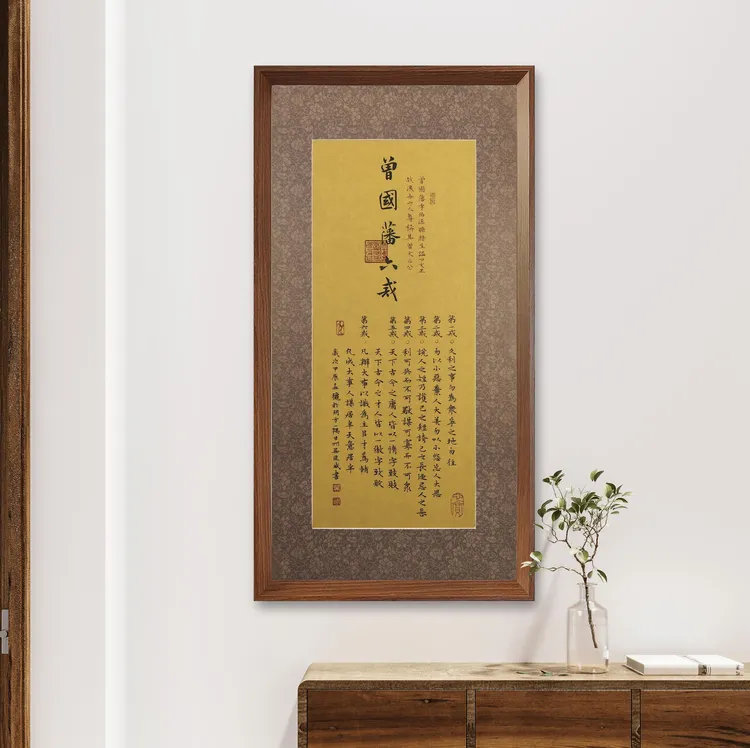 曾國藩六戒
曾國藩字伯涵號滌生謚曰文正
第一戒。久利之事勿爲衆爭之地勿往
第二戒。勿以小惡棄人大美勿以小怨忘人大恩
第三戒。說人之短乃護己之短誇己之長便忌人之長
第四戒。利可共而不可獨謀可寡而不可衆
第五戒。天下古今之庸人皆以一惰字致敗
天下古今之才人皆以一傲字致敗
第六戒。凡辦大事以識爲主以才爲輔
凡成大事人謀居半天意居半
歲次甲辰
書